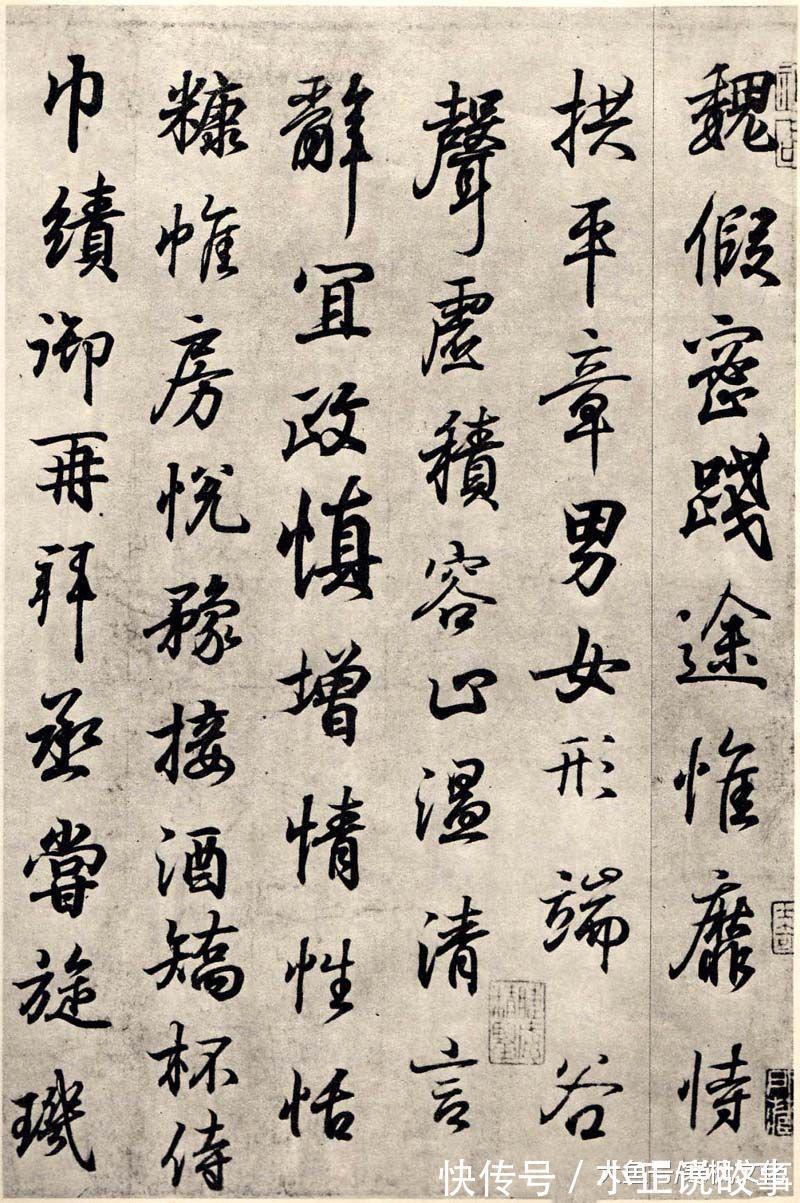 魏假密踐途惟靡恃
拱平章男女形端谷
聲虛積容止溫清言
辭宜政慎增情性恬
糠帷房悅豫接酒矯杯侍
巾績御再拜烝嘗旋璣
快传号 / 小正说故事